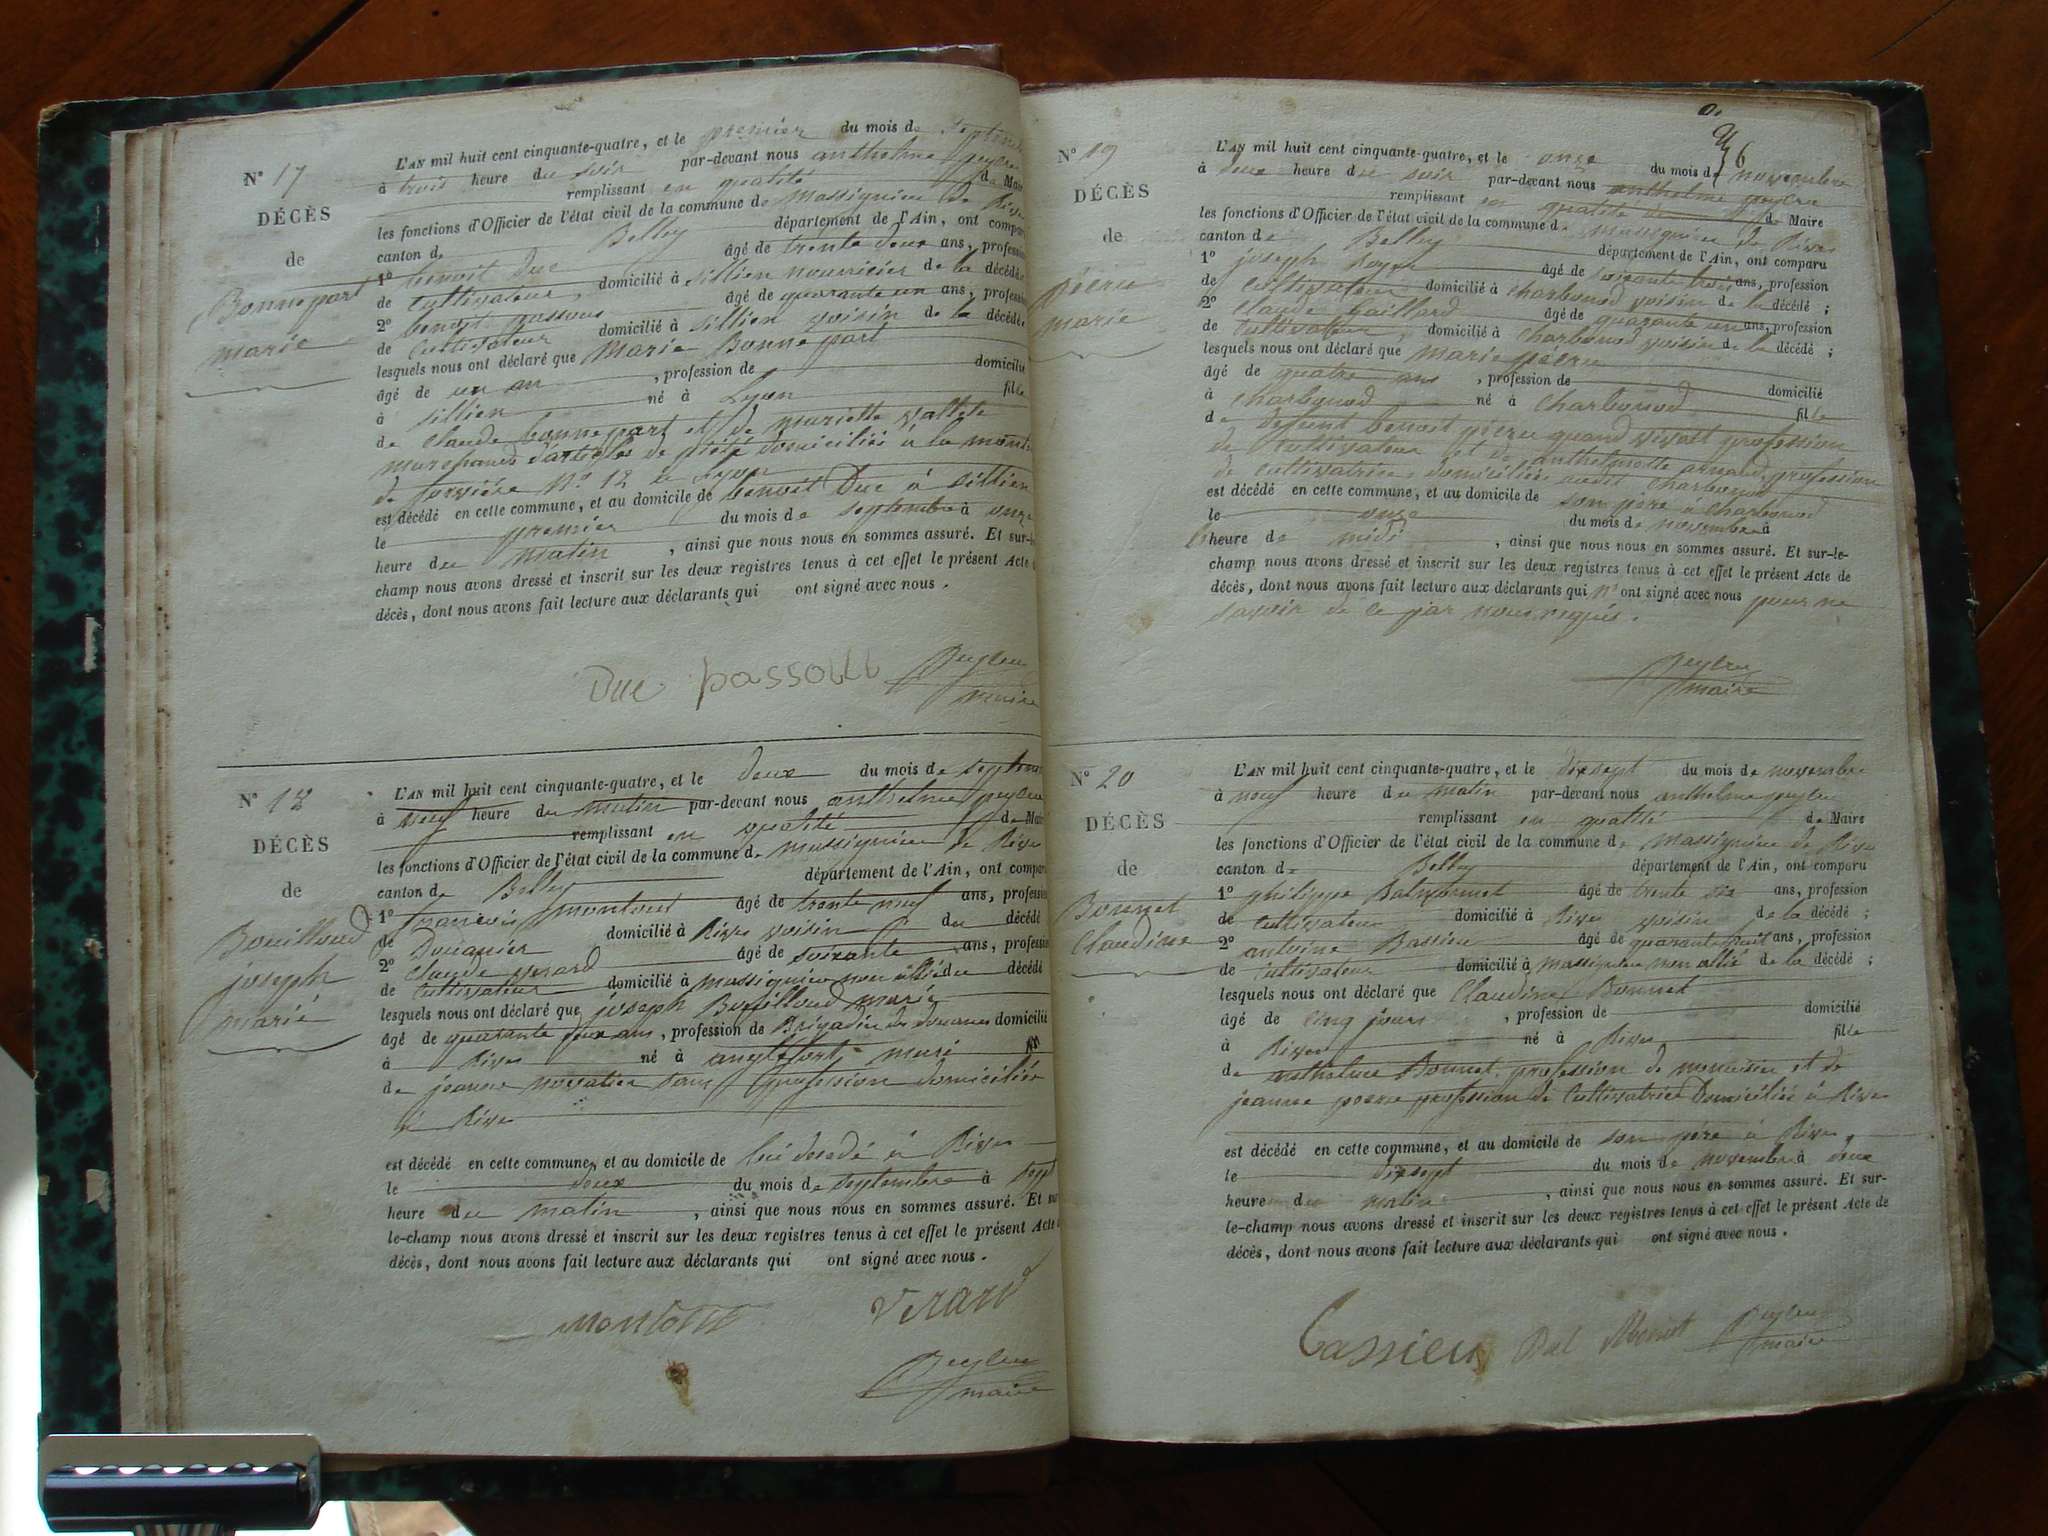 N° 17
DÉCÈS
de
Bonnepart
marie
L'AN mil huit cent cinquante-quatre, et le premier du mois de septembre
à trois heure du soir par-devant nous anthelme peyleu
remplissant en qualité de Maire
les fonctions d'Officier de l'état civil de la commune de Massignieu de Rives
canton de Belley département de l'Ain, ont comparu
1° benoit Duc âgé de trente deux ans, profession
de Cultivateur, domicilié à sillien nourricier de la décédée
2° benoit passous âgé de quarante un ans, profession
de Cultivateur domicilié à sillien voisin de la décédée
lesquels nous ont déclaré que Marie Bonnepart
âgé de un an, profession de domicilié
à sillien né à Lyon fille
de Claude bonnepart et de mariette
marchands d'articles de piété domiciliés à la montée
de forvière N° 12 à Lyon
est décédé en cette commune, et au domicile de benoit Duc à sillien
le premier du mois de septembre à onze
heure du matin, ainsi que nous nous en sommes assuré. Et sur-le-
champ nous avons dressé et inscrit sur les deux registres tenus à cet effet le présent Acte de
décès, dont nous avons fait lecture aux déclarants qui ont signé avec nous.
Duc passous Peyleu
maire
N° 18
DÉCÈS
de
Bouilloud
joseph
marié
L'AN mil huit cent cinquante-quatre, et le deux du mois de septembre
à neuf heure du matin par-devant nous anthelme peyleu
remplissant en qualité de Maire
les fonctions d'Officier de l'état civil de la commune de massignieu de Rives
canton de Belley département de l'Ain, ont comparu
1° francois montout âgé de trente neuf ans, profession
de Douanier domicilié à Rives voisin du décédé
2° Claude verard âgé de soixante ans, profession
de Cultivateur domicilié à massignieu non allié du décédé
lesquels nous ont déclaré que joseph Bouilloud marié
âgé de quarante deux ans, profession de Brigadier des douanes domicilié
à Rives né à anglefort, mari
de jeanne novatier sans profession domiciliée
à Rives
est décédé en cette commune, et au domicile de lui décédé à Rives
le deux du mois de septembre à sept
heure du matin, ainsi que nous nous en sommes assuré. Et sur-
le-champ nous avons dressé et inscrit sur les deux registres tenus à cet effet le présent Acte de
décès, dont nous avons fait lecture aux déclarants qui ont signé avec nous.
Montout verard
Peyleu
maire
N° 19
DÉCÈS
de
marie
L'AN mil huit cent cinquante-quatre, et le onze du mois de novembre
à deux heure du soir par-devant nous anthelme peyleu
remplissant en qualité de Maire
les fonctions d'Officier de l'état civil de la commune de massignieu de Rives
canton de Belley département de l'Ain, ont comparu
1° joseph âgé de soixante trois ans, profession
de Cultivateur domicilié à Charbonod voisin de la décédé ;
2° Claude Gaillard âgé de quarante un ans, profession
de Cultivateur, domicilié à Charbonod voisin de la décédé ;
lesquels nous ont déclaré que marie
âgé de quatre ans, profession de domicilié
à Charbonod né à Charbonod fille
de defunt benoit quand vivait profession
de Cultivateur et de anthelmette arnaud, profession
de cultivatrice, domiciliée audit Charbonod
est décédé en cette commune, et au domicile de son père à Charbonod
le onze du mois de novembre à
heure de midi, ainsi que nous nous en sommes assuré. Et sur-le-
champ nous avons dressé et inscrit sur les deux registres tenus à cet effet le présent Acte de
décès, dont nous avons fait lecture aux déclarants qui n' ont signé avec nous pour ne
savoir de ce par nous requis.
Peyleu
maire
N° 20
DÉCÈS
de
Bonnet
Claudine
L'AN mil huit cent cinquante-quatre, et le dixsept du mois de novembre
à neuf heure du matin par-devant nous anthelme peyleu
remplissant en qualité de Maire
les fonctions d'Officier de l'état civil de la commune de massignieu de Rives
canton de Belley département de l'Ain, ont comparu
1° philippe âgé de trente six ans, profession
de Cultivateur domicilié à Rives voisin de la décédé ;
2° antoine Cassieu âgé de quarante huit ans, profession
de Cultivateur domicilié à massignieu non allié de la décédé ;
lesquels nous ont déclaré que Claudine Bonnet
âgé de cinq jours, profession de domicilié
à Rives né à Rives fille
de anthelme Bonnet, profession de menuisier et de
jeanne profession de Cultivatrice Domiciliés à Rives
est décédé en cette commune, et au domicile de son père à Rives
le dixsept du mois de novembre à deux
heure du matin, ainsi que nous nous en sommes assuré. Et sur-
le-champ nous avons dressé et inscrit sur les deux registres tenus à cet effet le présent Acte de
décès, dont nous avons fait lecture aux déclarants qui ont signé avec nous.
Cassieu Peyleu
maire